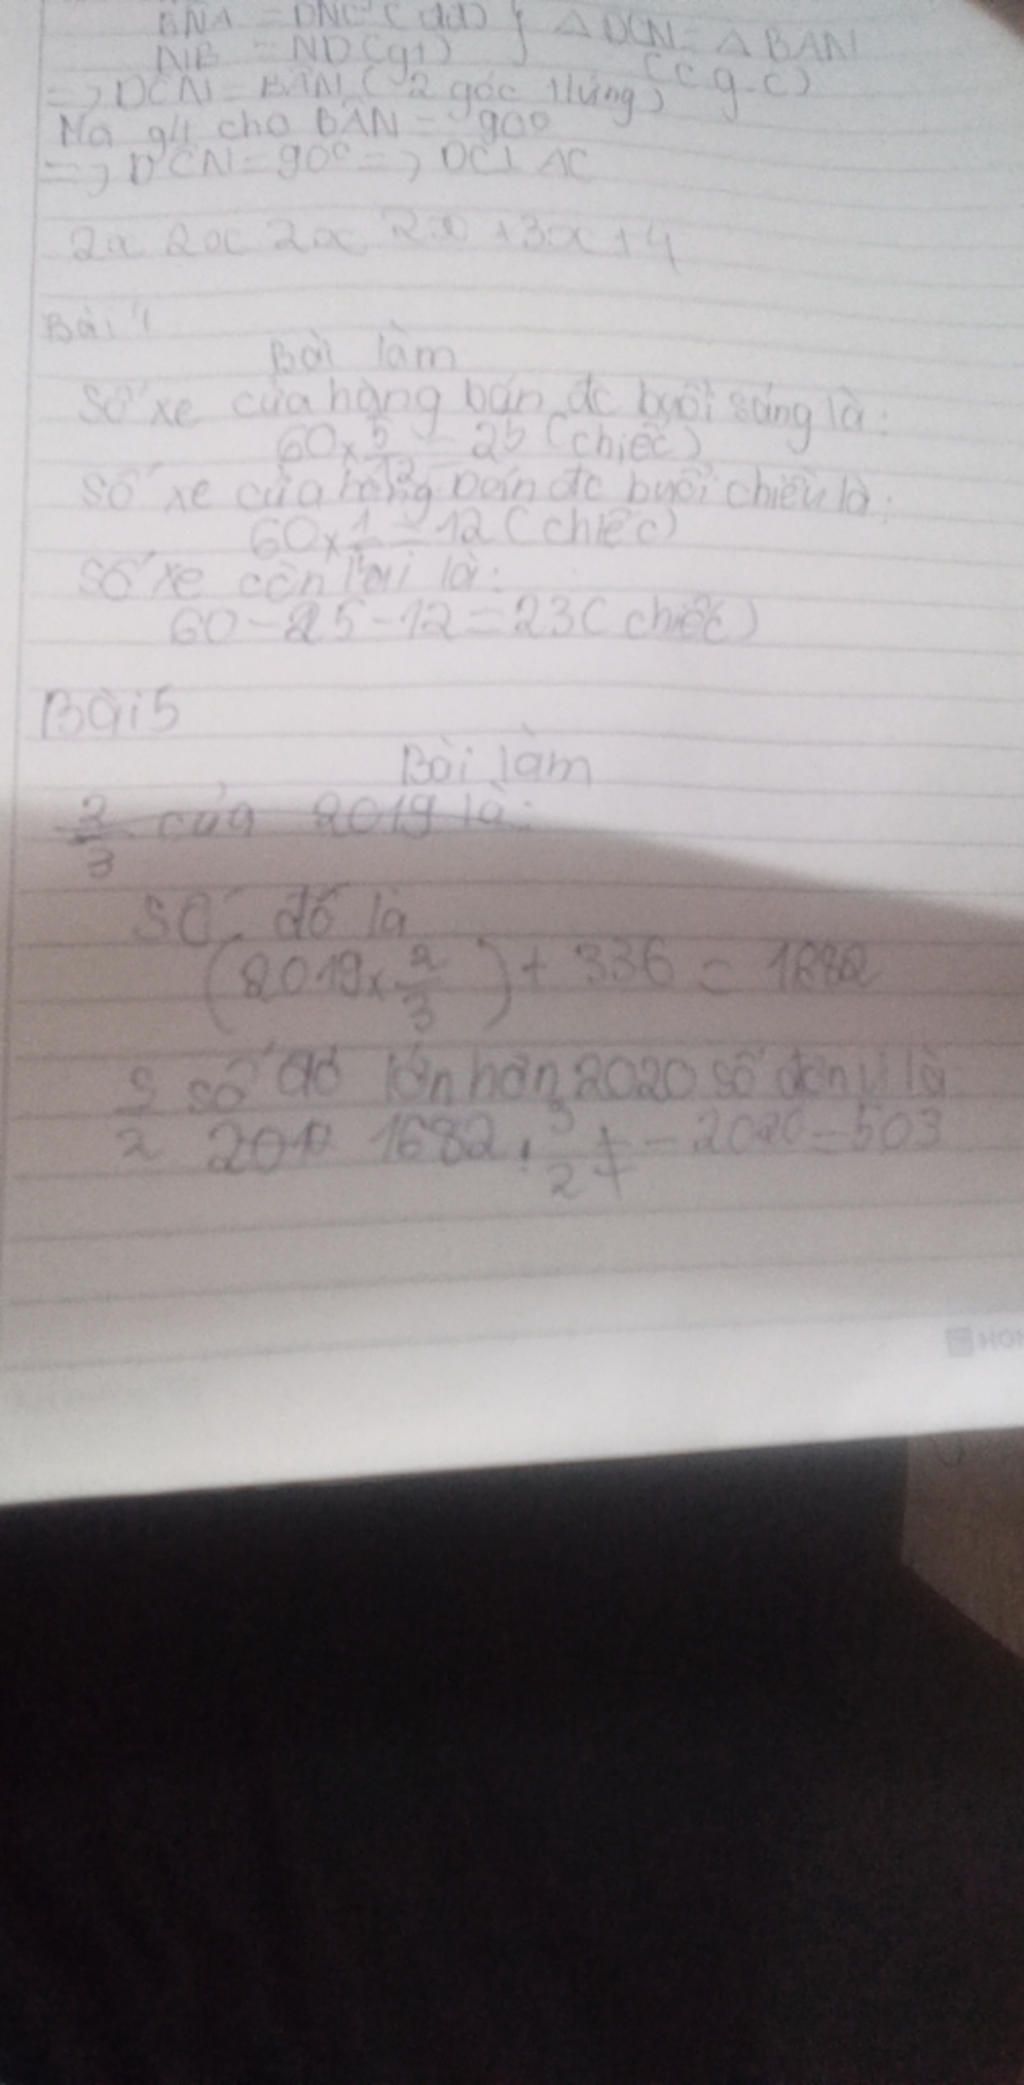 BNA = DNC (dd) } Δ DCN = Δ BAN
NB = ND (gt) (c.g.c)
=> DCN = BAN (2 góc tứng)
Ma gt cho BAN = 90°
=> DCN = 90° => DC⊥AC
2x 2x 2x +3x+4
Bài 4
Bài làm
Số xe cửa hàng bán đc buổi sáng là:
60 x 5/12 = 25 (chiếc)
Số xe cửa hàng bán đc buổi chiều là:
60 x = 12 (chiếc)
Số xe còn lại là:
60 - 25 - 12 = 23 (chiếc)
Bài 5
Bài làm
2/3 của 2019 là:
Số đó là
(2019 x 2/3) + 336 = 1682
số đó lớn hơn 2020 số đơn vị là
1682 . 3/2 - 2020 = 503
HON